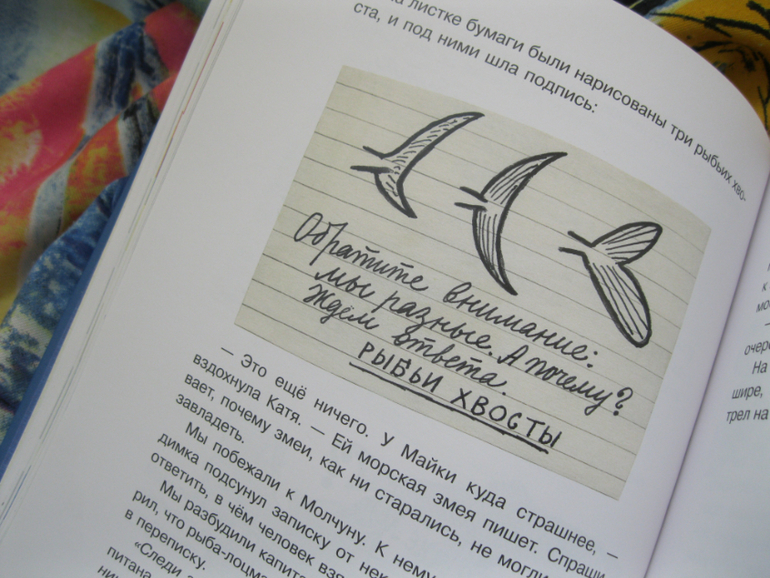 на листке бумаги были нарисованы три рыбьих хво-
ста, и под ними шла подпись:
Обратите внимание:
мы разные. А почему?
Ждём ответа.
РЫБЬИ ХВОСТЫ
— Это ещё ничего. У Майки куда страшнее, —
вздохнула Катя. — Ей морская змея пишет. Спраши
вает, почему змеи, как ни старались, не могли
завладеть.
Мы побежали к Молчуну. К нему
димка подсунул записку от нек
ответить, в чём человек взя
Мы разбудили капита
рил, что рыба-лоцма
в переписку.
«Следи
питана
к
мо
—
очере
На
шире,
трел на